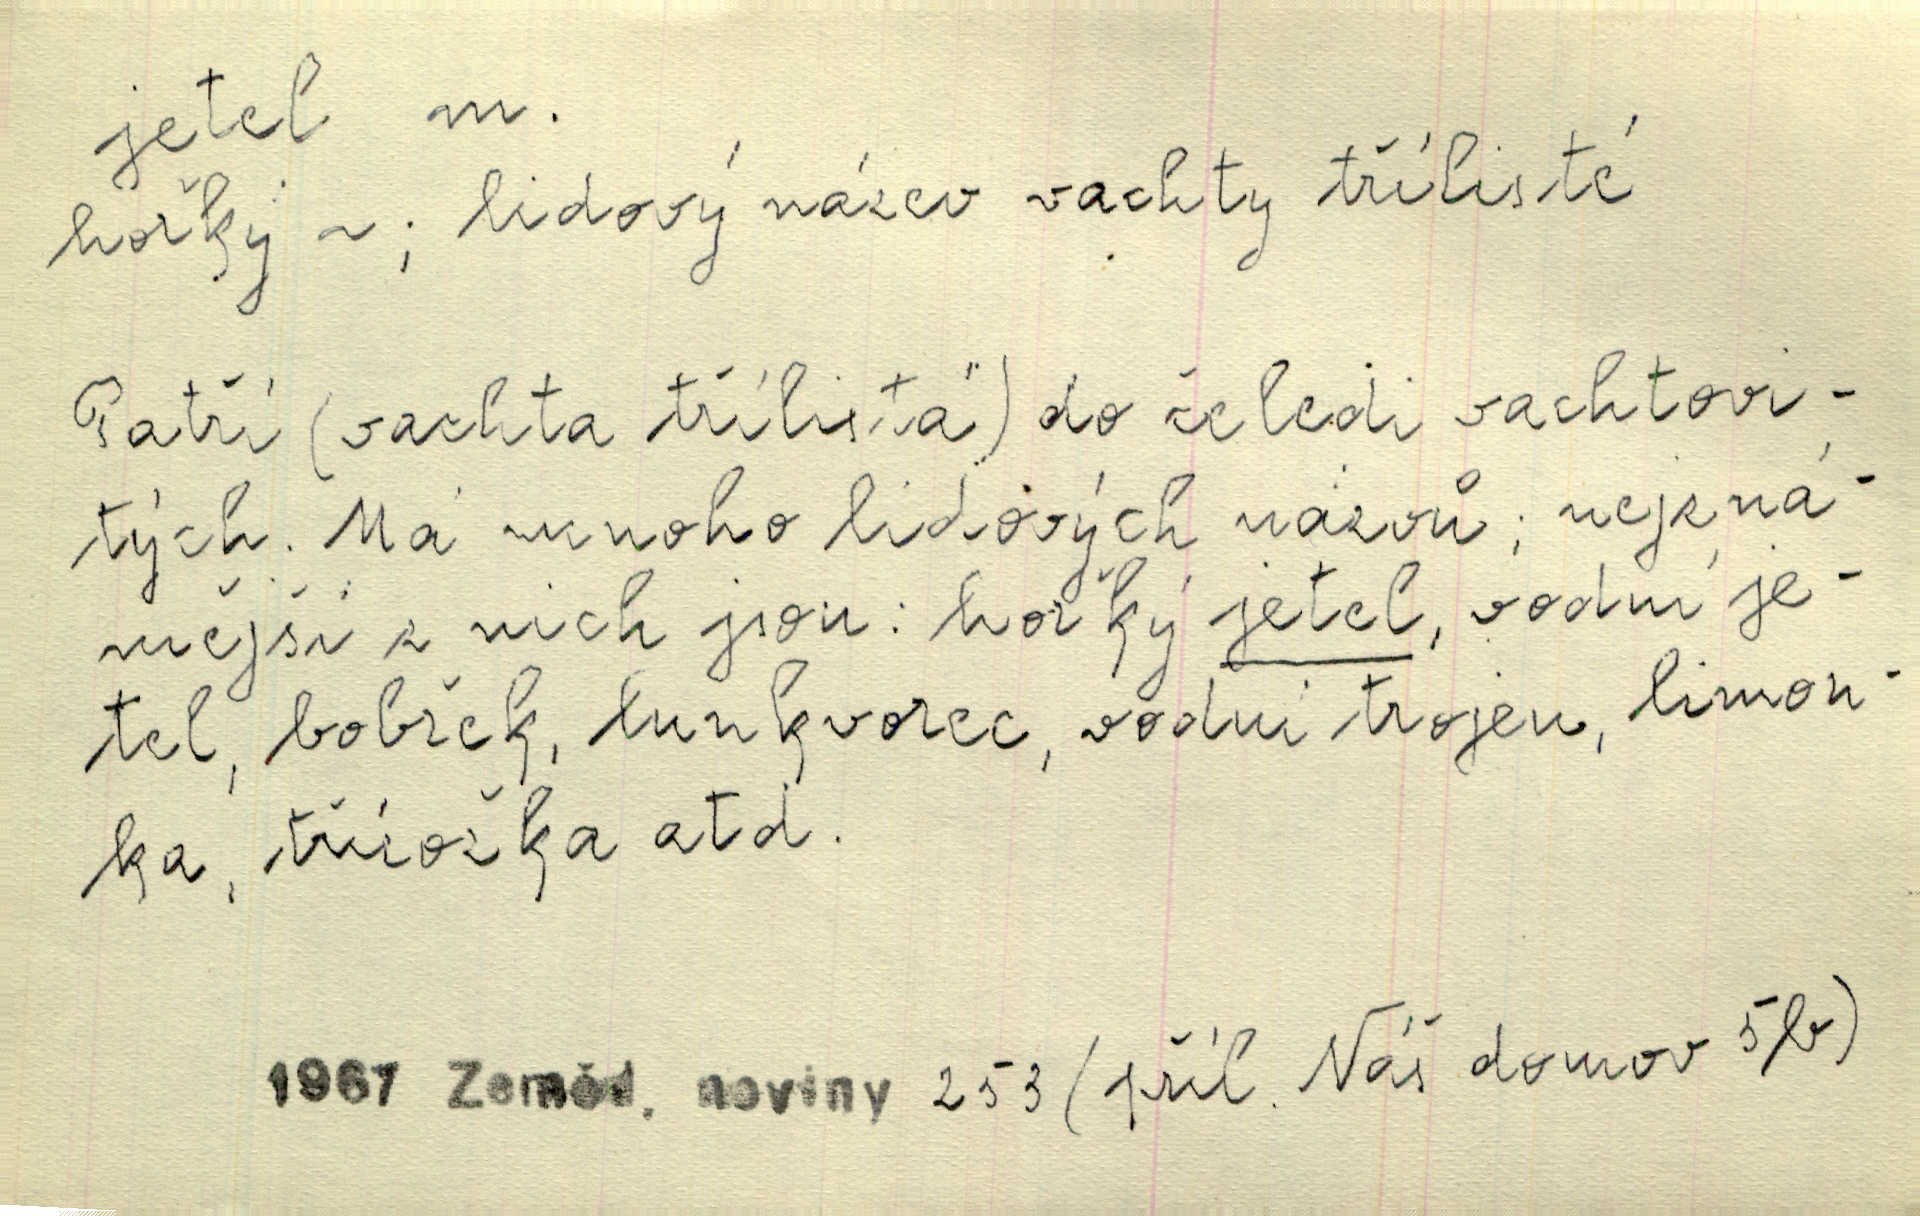 jetel m.
hořký ~; lidový název vachty třílisté
Patří (vachta třílistá) do čeledi vachtovi-
tých. Má mnoho lidových názvů; nejzná-
mější z nich jsou: hořký jetel, vodní je-
tel, bobřek, lunkvorec, vodní trojen, limon-
ka, třírožka atd.
1967 Zeměd. noviny 253 (příl. Náš domov 5/b)